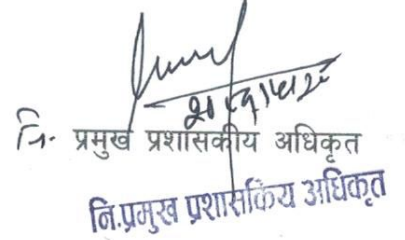 नि. प्रमुख प्रशासकीय अधिकृत
नि.प्रमुख प्रशासकिय अधिकृत